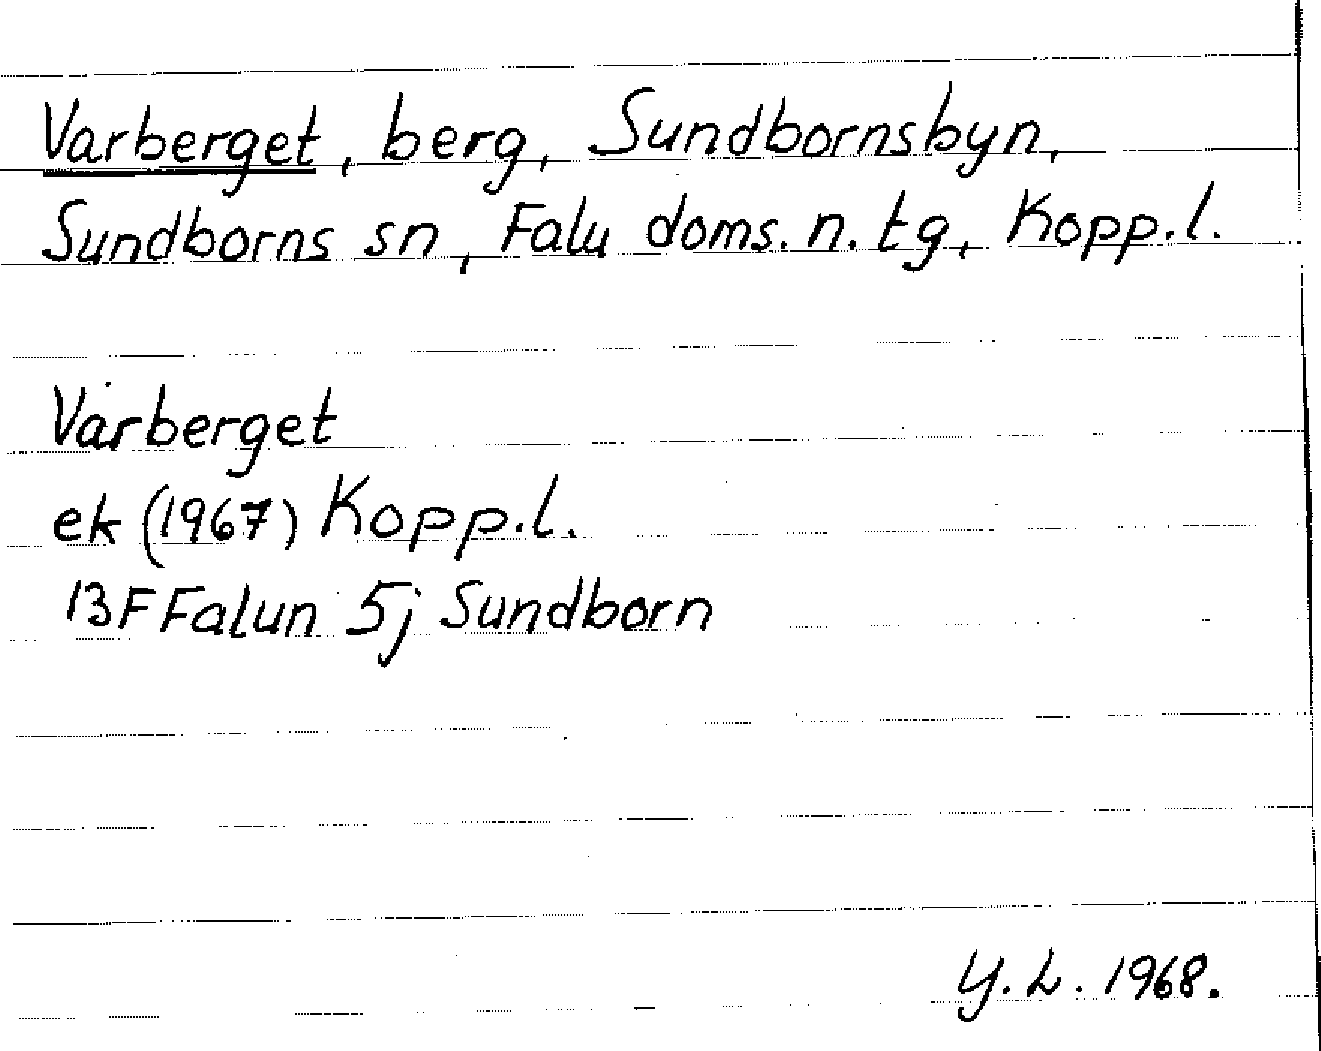 Varberget, berg, Sundbornsbyn,
Sundborns sn, Falu doms. n. tg, Kopp.l.
Varberget
ek (1967) Kopp.l.
13F Falun 5j Sundborn
Y.L. 1968.